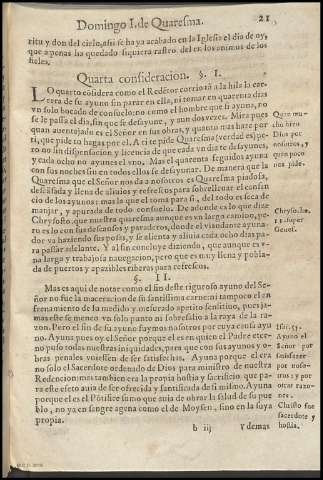 Domingo I. de Quaresma. 21
ritu y don del cielo, assi se haya acabado en la Iglesia el dia de oy,
que apenas ha quedado siquiera rastro del en los animos de los
fieles.
Quarta consideracion. §. I.
LO quarto cósidera como el Redétor corrio tá a la hila la car
rera de su ayuno sin parar en ella, ni tomar en quarenta dias
vn solo bocado de consuelo: no como el hombre que si ayuno, no
se le passa el dia, sin que se desayune, y aun dos vezes. Mira pues
quan auentajado es el Señor en sus obras, y quanto mas haze por
ti, que pide tu hagas por el. A ti te pide Quaresma (verdad es) pe-
ro no sin dispensacion y licencia de que cada vn dia te desayunes,
y cada ocho no ayunes el vno. Mas el quarenta seguidos ayuna
con sus noches sin en todos ellos se desayunar. De manera que la
Quaresma que el Señor nos da a nosotros es Quaresma piadosa,
descásada y llena de aliuios y refrescos para sobrelleuar el cansan
cio de los ayunos: mas la que el toma para si, del todo es seca de
manjar, y apurada de todo consuelo. De adonde es lo que dize
Chrysosto. que nuestra quaresma aunque es vn largo camino, pe-
ro es lo con sus descansos y paraderos, donde el viandante ayuna-
dor va haziendo sus posas, y se alienta y aliuia cada ocho dias pa
ra passar adelante. Y al fin concluye diziendo, que aunque es v-
na larga y trabajosa nauegacion, pero que es muy llena y pobla-
da de puertos y apazibles riberas para refrescos.
§. II.
Mas es aqui de notar como el fin deste riguroso ayuno del Se-
ñor no fue la maceracion de su santissima carne: ni tampoco el en
frenamiento de su medido y mesurado apetito sensitiuo, pues ja-
mas este se meneo vn solo punto ni sobresalio a la raya de la ra-
zon. Pero el fin de su ayuno fuymos nosotros por cuya causa ayu
no. Ayuna pues el Señor porque el es en quien el Padre eter-
no puso todas nuestras iniquidades, para que con sus ayunos y o-
bras penales vuiessen de ser satisfechas. Ayuna porque el era
no solo el Sacerdote ordenado de Dios para ministro de nuestra
Redencion: mas tambien era la propia hostia y sacrificio, que pa-
ra este efeto auia de ser ofrecida y santificada de si mismo. Ayuna
porque el es el Pótifice sumo que auia de obrar la salud de su pue
blo, no ya en sangre agena como el de Moysen, sino en la suya
propria.
b iij y demas
Quan mu-
cho hizo
Dios por
nosotros, y
quan poco
nos pide.
Chrysosto.
Genes.
Isai. 53.
Ayuno el
Señor por
satisfazer
por noso-
tros: y por
otras razo-
nes.
Christo fue
sacerdote y
hostia.